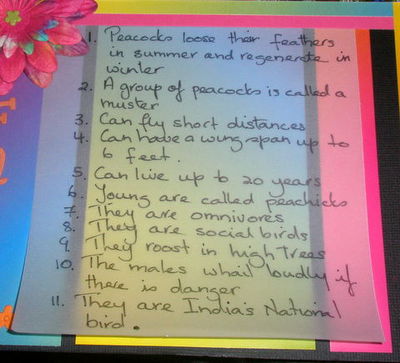 1. Peacocks loose their feathers
in summer and regenerate in
winter
2. A group of peacocks is called a
muster
3. Can fly short distances
4. Can have a wing span up to
6 feet.
5. Can live up to 20 years
6. Young are called peachicks
7. They are omnivores
8. They are social birds
9. They roost in high trees
10. The males whail loudly if
there is danger
11. They are India's National
bird.